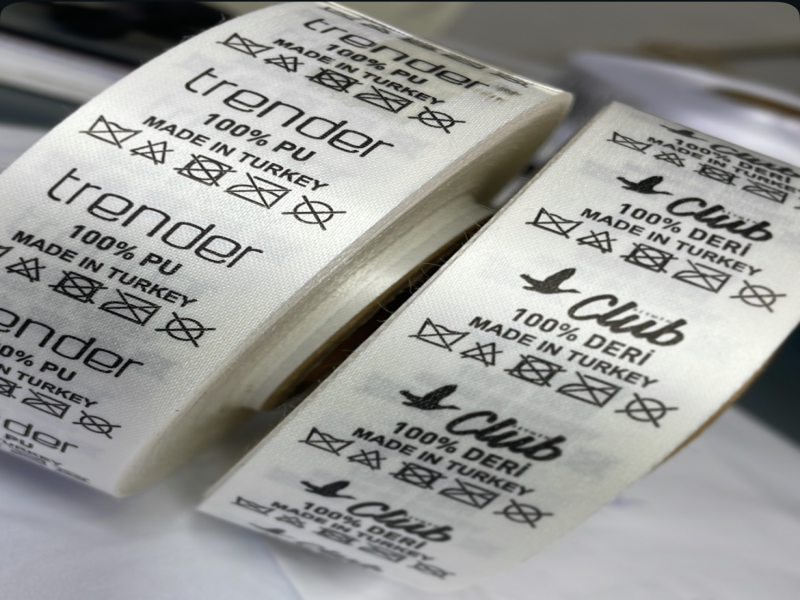 trender
100% PU
MADE IN TURKEY
trender
100% PU
MADE IN TURKEY
trender
100% PU
MADE IN TURKEY
ender
0% PU
IN TURKEY
der
PU
100% DERİ
MADE IN TURKEY
Club
100% DERİ
MADE IN TURKEY
Club
100% DERİ
MADE IN TURKEY
Club
100% DERİ
MADE IN TURKEY
Club
100% DERİ
MADE IN TURKEY